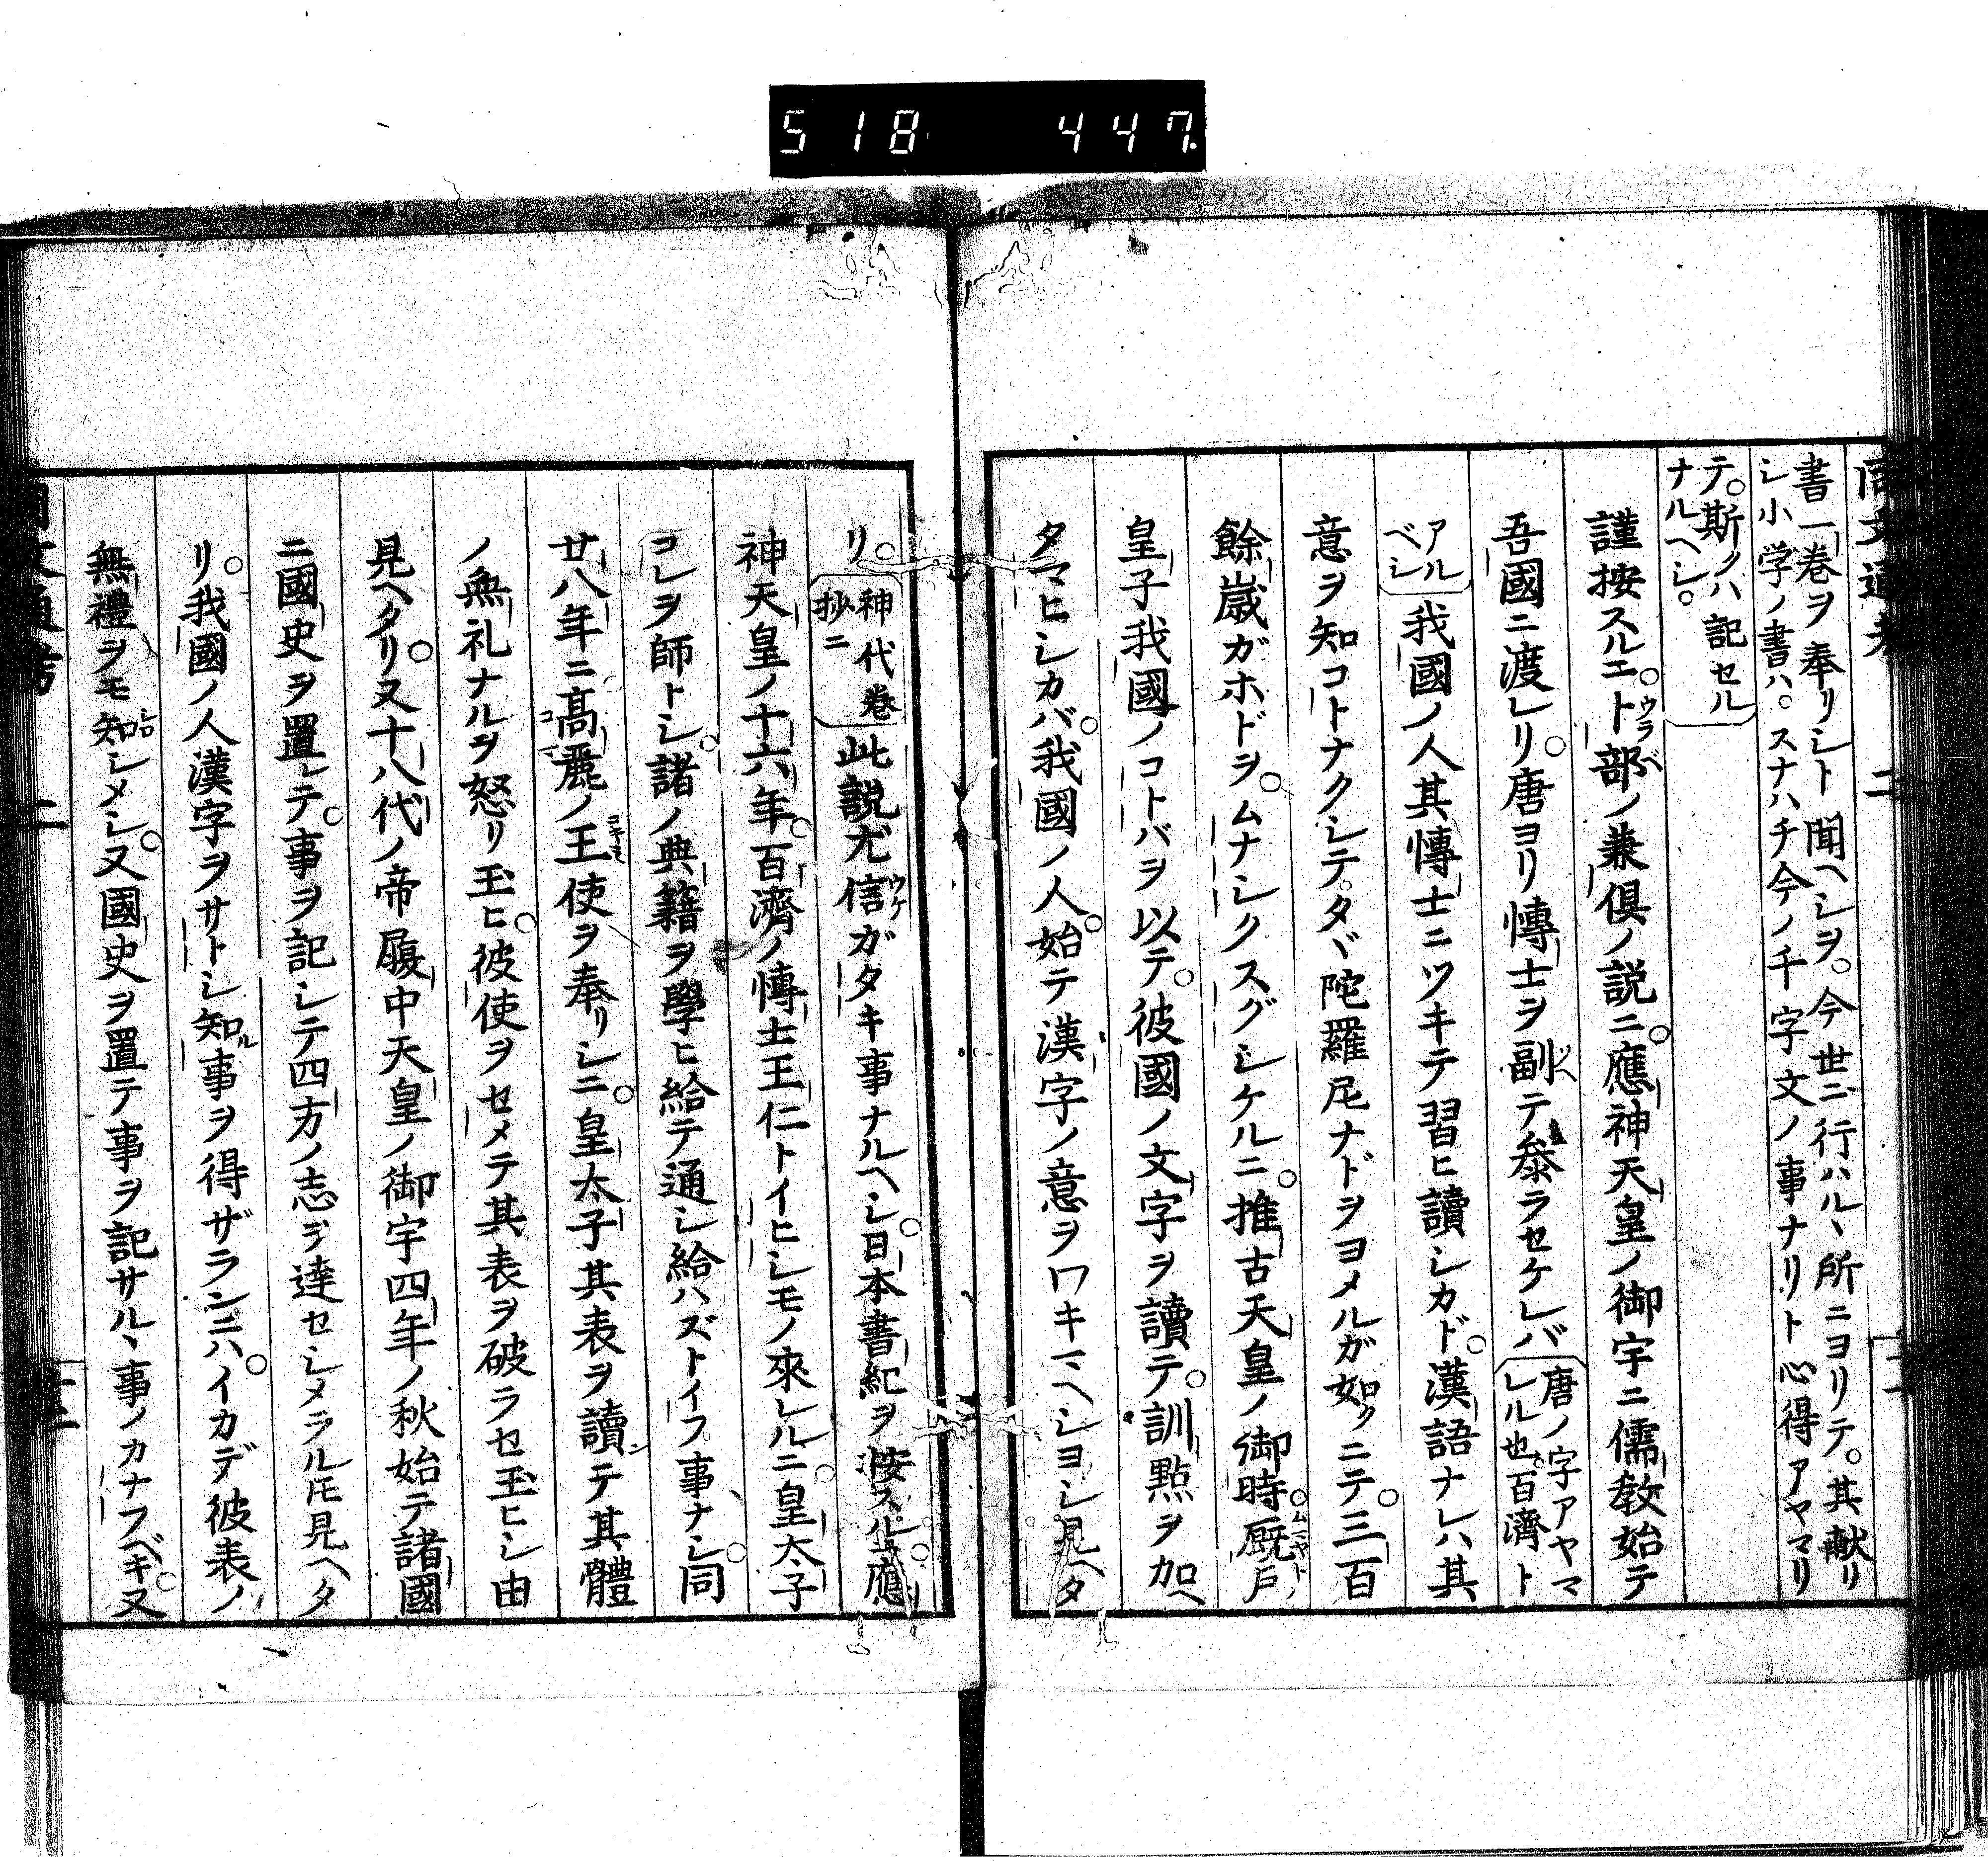 518 447
同文通考 二
書一巻ヲ奉リシト聞ヘシヲ。今世ニ行ハルヽ所ニヨリテ。其献リ
シ小学ノ書ハ。スナハチ今ノ千字文ノ事ナリト心得アヤマリ
テ。斯クハ記セル
ナルヘシ。
謹按スルニ。卜部ノ兼倶ノ説ニ。應神天皇ノ御宇ニ儒教始テ
吾國ニ渡レリ。唐ヨリ博士ヲ副テ叅ラセケレバ
唐ノ字アヤマ
レル也。百濟ト
アル
ベシ
我國ノ人其博士ニツキテ習ヒ讀シカド。漢語ナレハ其
意ヲ知コトナクシテ。タヾ陀羅尼ナドヲヨメルガ如クニテ。三百
餘歳ガホドヲ。ムナシクスグシケルニ。推古天皇ノ御時。厩戸
皇子我國ノコトバヲ以テ。彼國ノ文字ヲ讀テ。訓點ヲ加ヘ
タマヒシカバ。我國ノ人。始テ漢字ノ意ヲワキマヘシヨシ見ヘタ
リ。
神代巻
抄ニ
此説尤信ガタキ事ナルヘシ。日本書紀ヲ按スルニ。應
神天皇ノ十六年。百濟ノ博士王仁トイヒシモノ來レルニ。皇太子
コレヲ師トシ。諸ノ典籍ヲ學ヒ給テ通シ給ハズトイフ事ナシ。同
廿八年ニ高麗ノ王使ヲ奉リシニ。皇太子其表ヲ讀テ其體
ノ無礼ナルヲ怒リ玉ヒ。彼使ヲセメテ其表ヲ破ラセ玉ヒシ由
見ヘタリ。又十八代ノ帝履中天皇ノ御宇四年ノ秋始テ諸國
ニ國史ヲ置テ。事ヲ記シテ四方ノ志ヲ達セシメラル𪜈見ヘタ
リ。我國ノ人漢字ヲサトシ知事ヲ得ザランニハ。イカデ彼表ノ
無禮ヲモ知シメシ。又國史ヲ置テ事ヲ記サルヽ事ノカナフベキ。又
同文通考 二